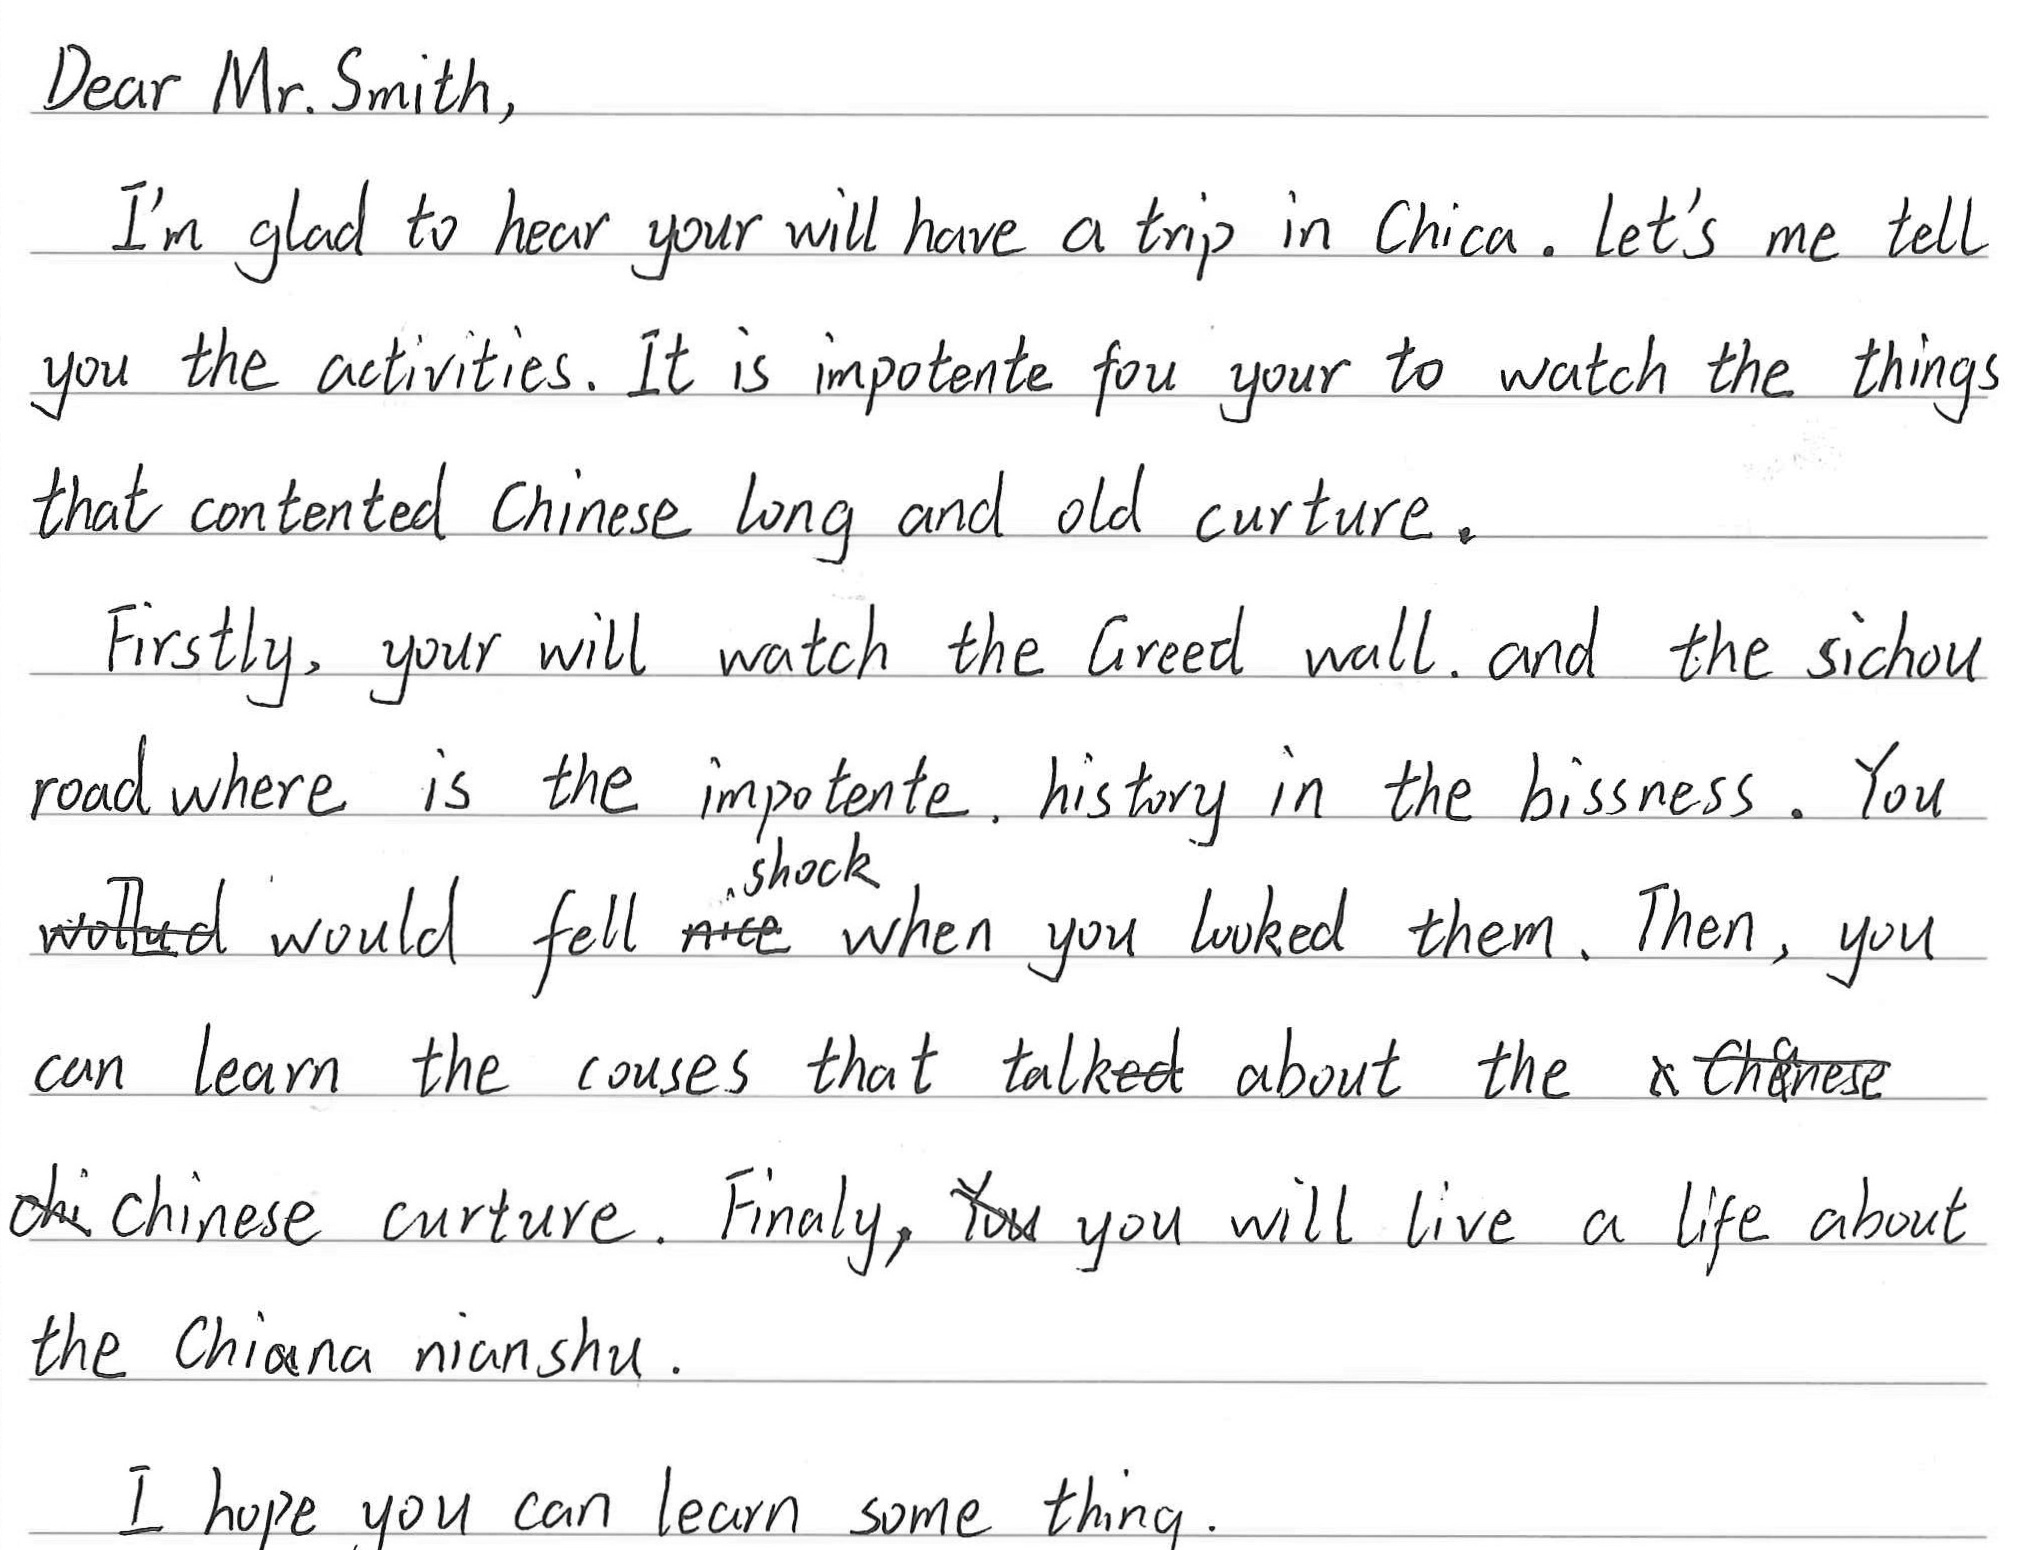 Dear Mr. Smith,
I'm glad to hear your will have a trip in Chica. Let's me tell
you the activities. It is impotente fou your to watch the things
that contented Chinese long and old curture.
Firstly, your will watch the Greed wall. and the sichou
road where is the impotente. history in the bissness. You
would fell shock when you looked them. Then, you
can learn the couses that talk about the
chinese curture. Finaly, you will live a life about
the Chiana nianshu.
I hope you can learn some thing.